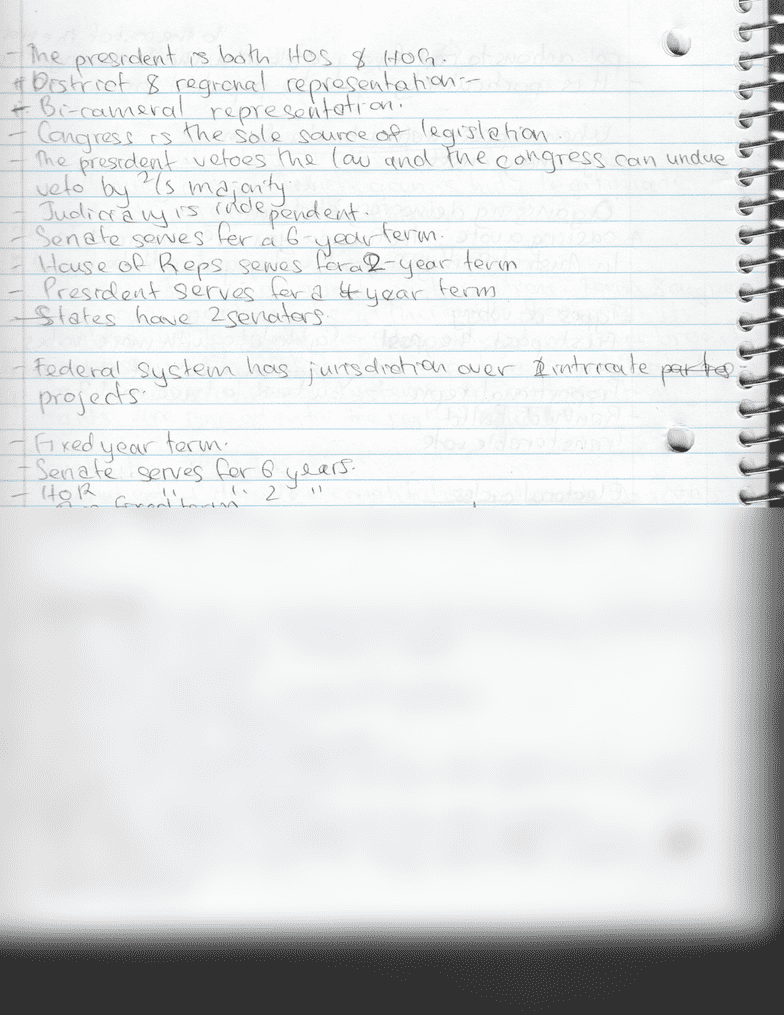 - The president is both HOS & HOG.
- District & regional representation:-
- Bi-cameral representation.
- Congress is the sole source of legislation
- The president vetoes the law and the congress can undue
veto by 2/s majority.
- Judiciary is independent.
- Senate serves for a 6-year term.
- House of Reps serves for a 2-year term
- President serves for a 4 year term
- States have 2 senators.
- Federal system has jurisdiction over intricate
projects.
- Fixed year term.
- Senate serves for 6 years.
- HOR " " 2 "